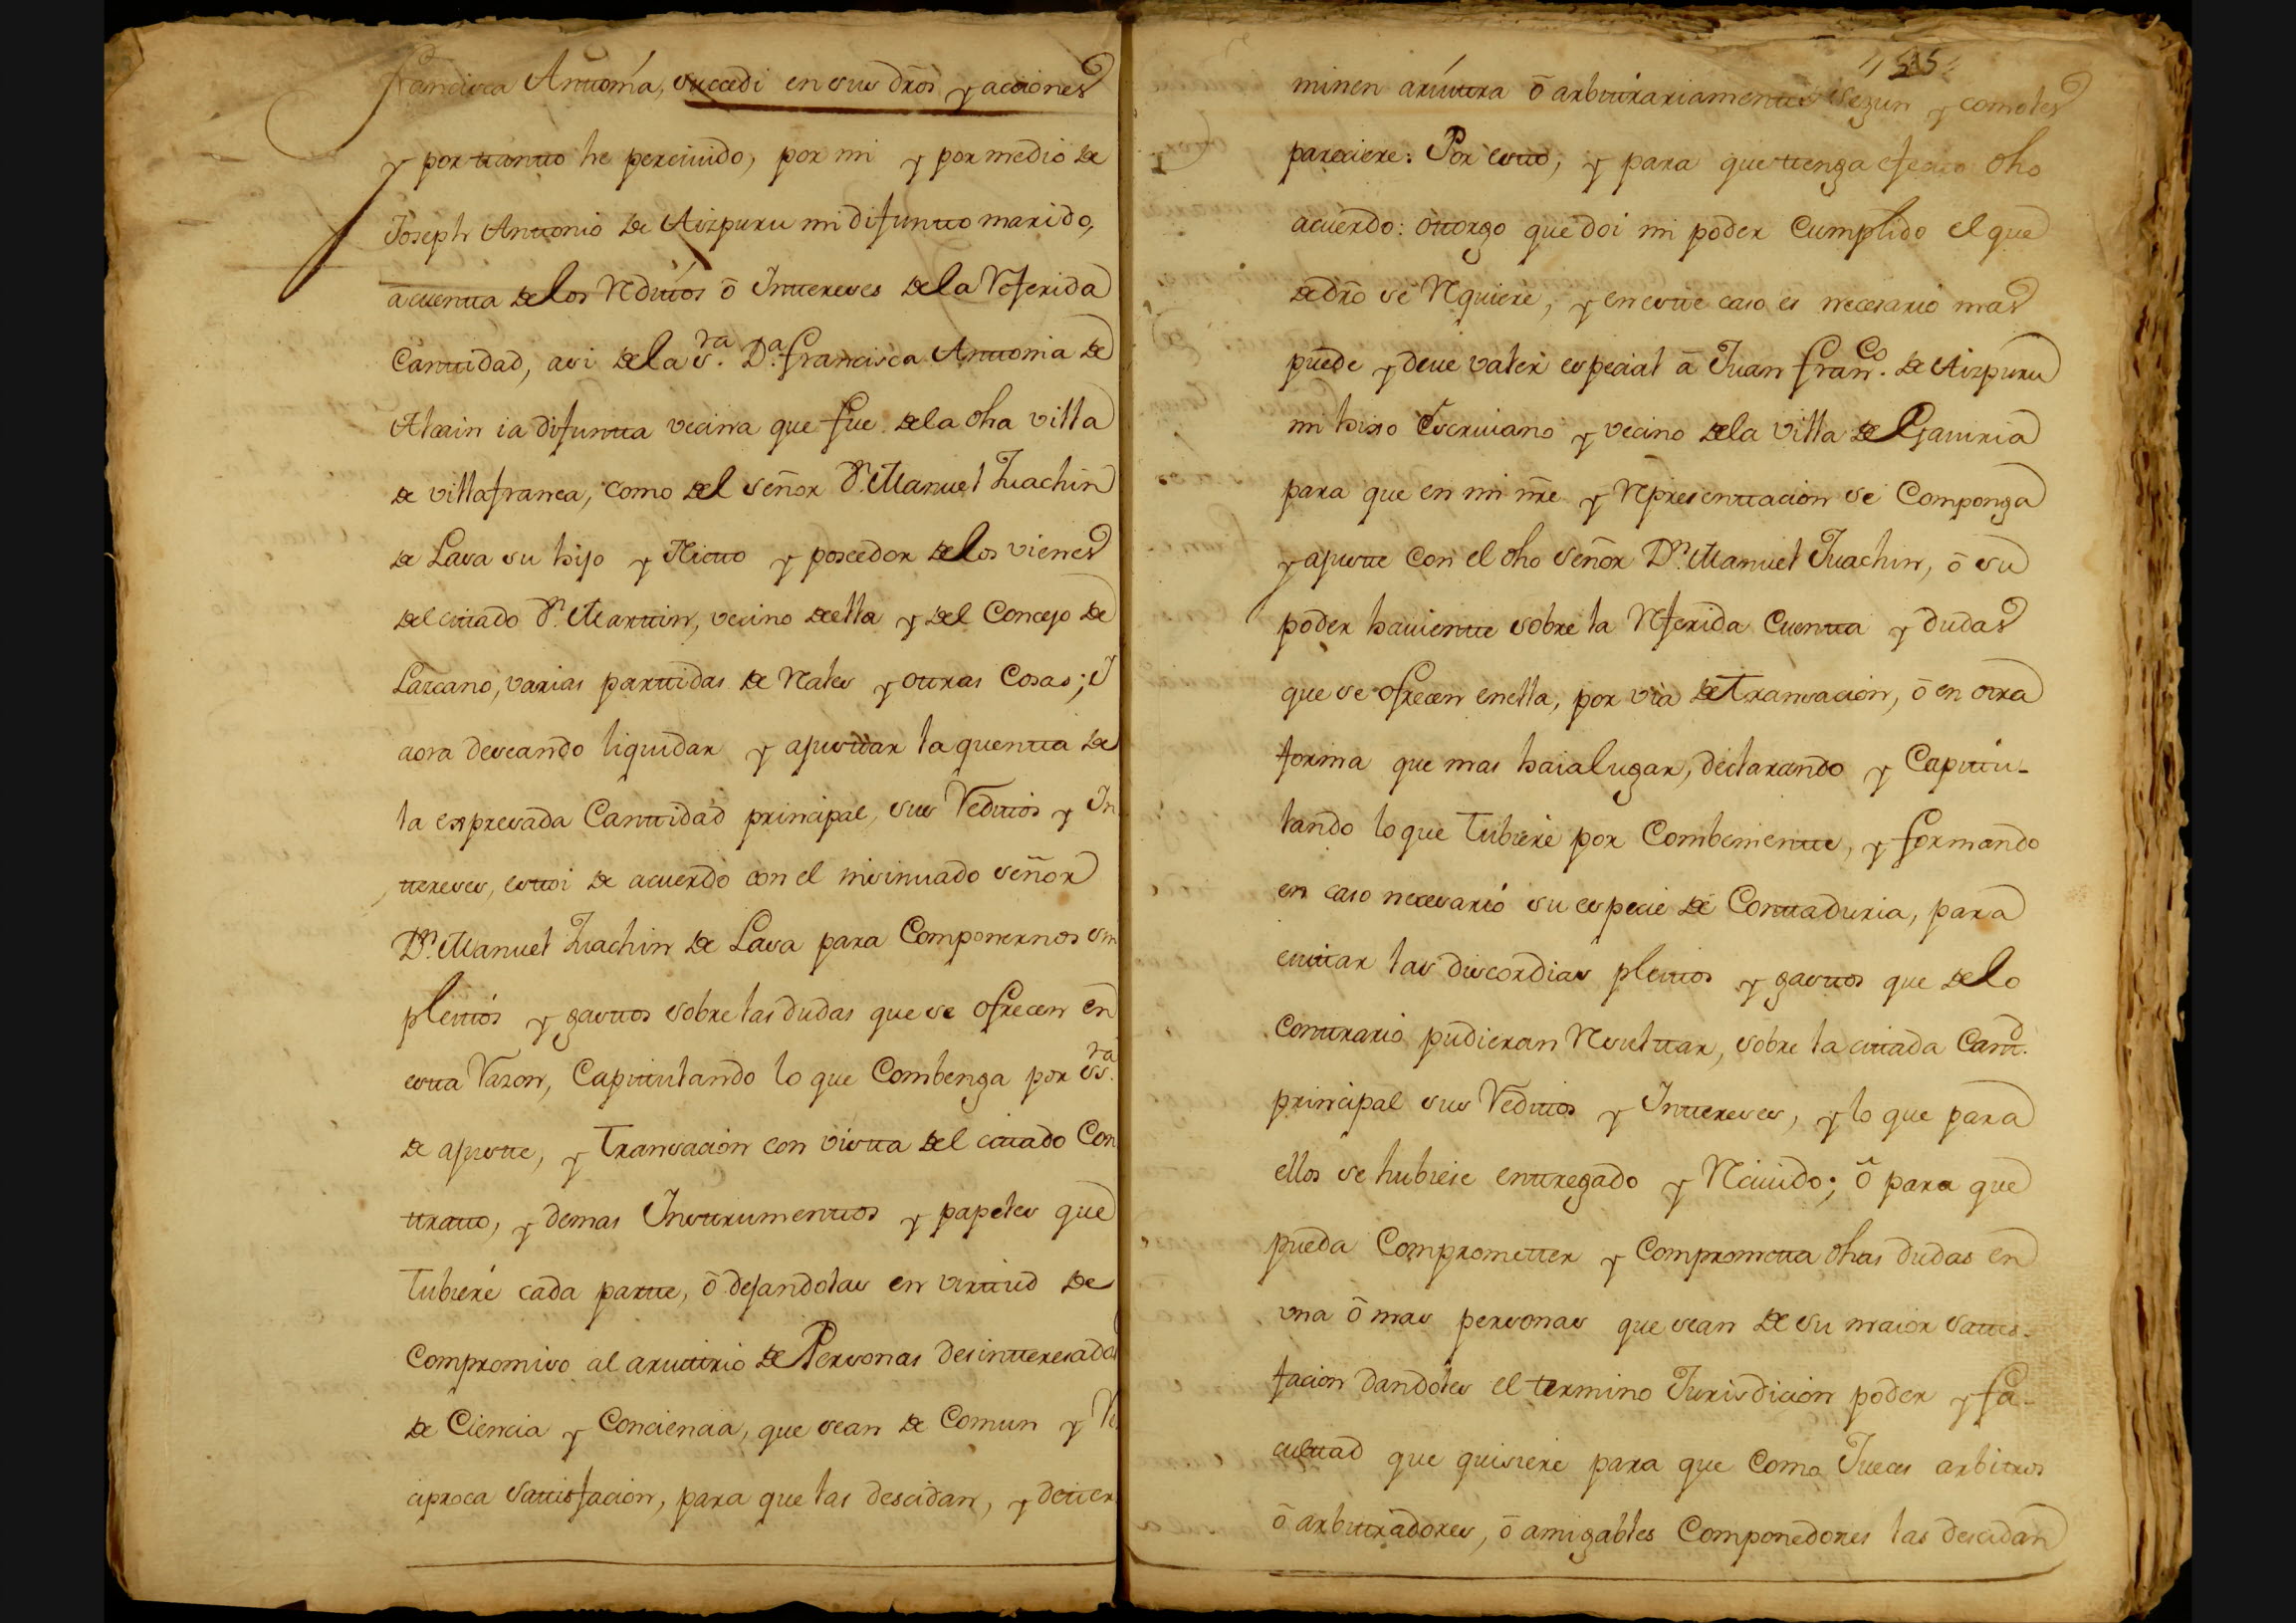 Francisca Anttonia, succedi en sus dr̃os y acciones
y por ttantto he percivido, por mi y por medio de
Joseph Anttonio de Aizpuru mi difuntto marido,
a cuentta de los Redittos ō Inttereses de la Referida
Canttidad, asi de la S.ra D.a Francisca Anttonia de
Atxain ia difuntta vecina que fue de la dha villa
de villafranca, como del señor D.n Manuel Juachin
de Lasa su hijo y Nietto y posedor de los vienes
del cittado D.n Marttin, vecino de ella y del Concejo de
Lazcano, varias parttidas de Rales y ottras Cosas; y
aora deseando liquidar y ajusttar la quentta de
la expresada Canttidad principal, sus Redittos y In
ttereses, esttoi de acuerdo con el insinuado señor
D.n Manuel Juachin de Lasa para Componernos sin
pleittos y gasttos sobre las dudas que se ofrecen en
estta Razon, Capittulando lo que Combenga por ss.ra
de ajustte, y transacion con vistta del cittado Con
ttratto, y demas Insttrumenttos y papeles que
tubiere cada partte, ō dejandolas en virttud de
compromiso al arvittrio de Personas desintteresadas
de Ciencia y Conciencia, que sean de Comun y Re
ciproca sattisfacion, para que las descidan, y detter
155
minen arvittra ō arbittrariamentte segun y como les
pareciere: Por estto, y para que ttenga efecto dho
acuerdo: ottorgo que doi mi poder Cumplido el que
de dr̃o se Requiere, y en estte caso es necesario mas
puede y deve valer especial ā Juan Fran.co de Aizpuru
mi hixo Escriviano y vecino de la villa de Gaviria
para que en mi nr̃e y Representtacion se Componga
y ajustte con el dho señor D.n Manuel Juachin, ō su
poder haviente sobre la Referida Cuentta y dudas
que se ofrecen en ella, por via de Transacion, ō en otra
forma que mas haia lugar, declarando y Capittu-
lando lo que tubiere por Combenientte, y formando
en caso necesario su especie de Conttaduria, para
evittar las discordias pleittos y gasttos que de lo
conttrario pudieran Resulttar, sobre la cittada Cantt.d
principal sus Redittos y Inttereses, y lo que para
ellos se hubiese enttregado y Recivido; ō para que
pueda Compromетter y Compromетta dhas dudas en
una ō mas personas que sean de su maior sattis-
facion dandoles el termino Jurisdicion poder y fa-
culttad que quisiere para que como Jueces arbitros
ō arbittradores, ō amigables Componedores las descidan